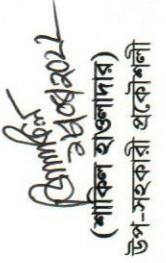 ২৮/০৪/২০২২
(শাকিল হাওলাদার)
উপ-সহকারী প্রকৌশলী